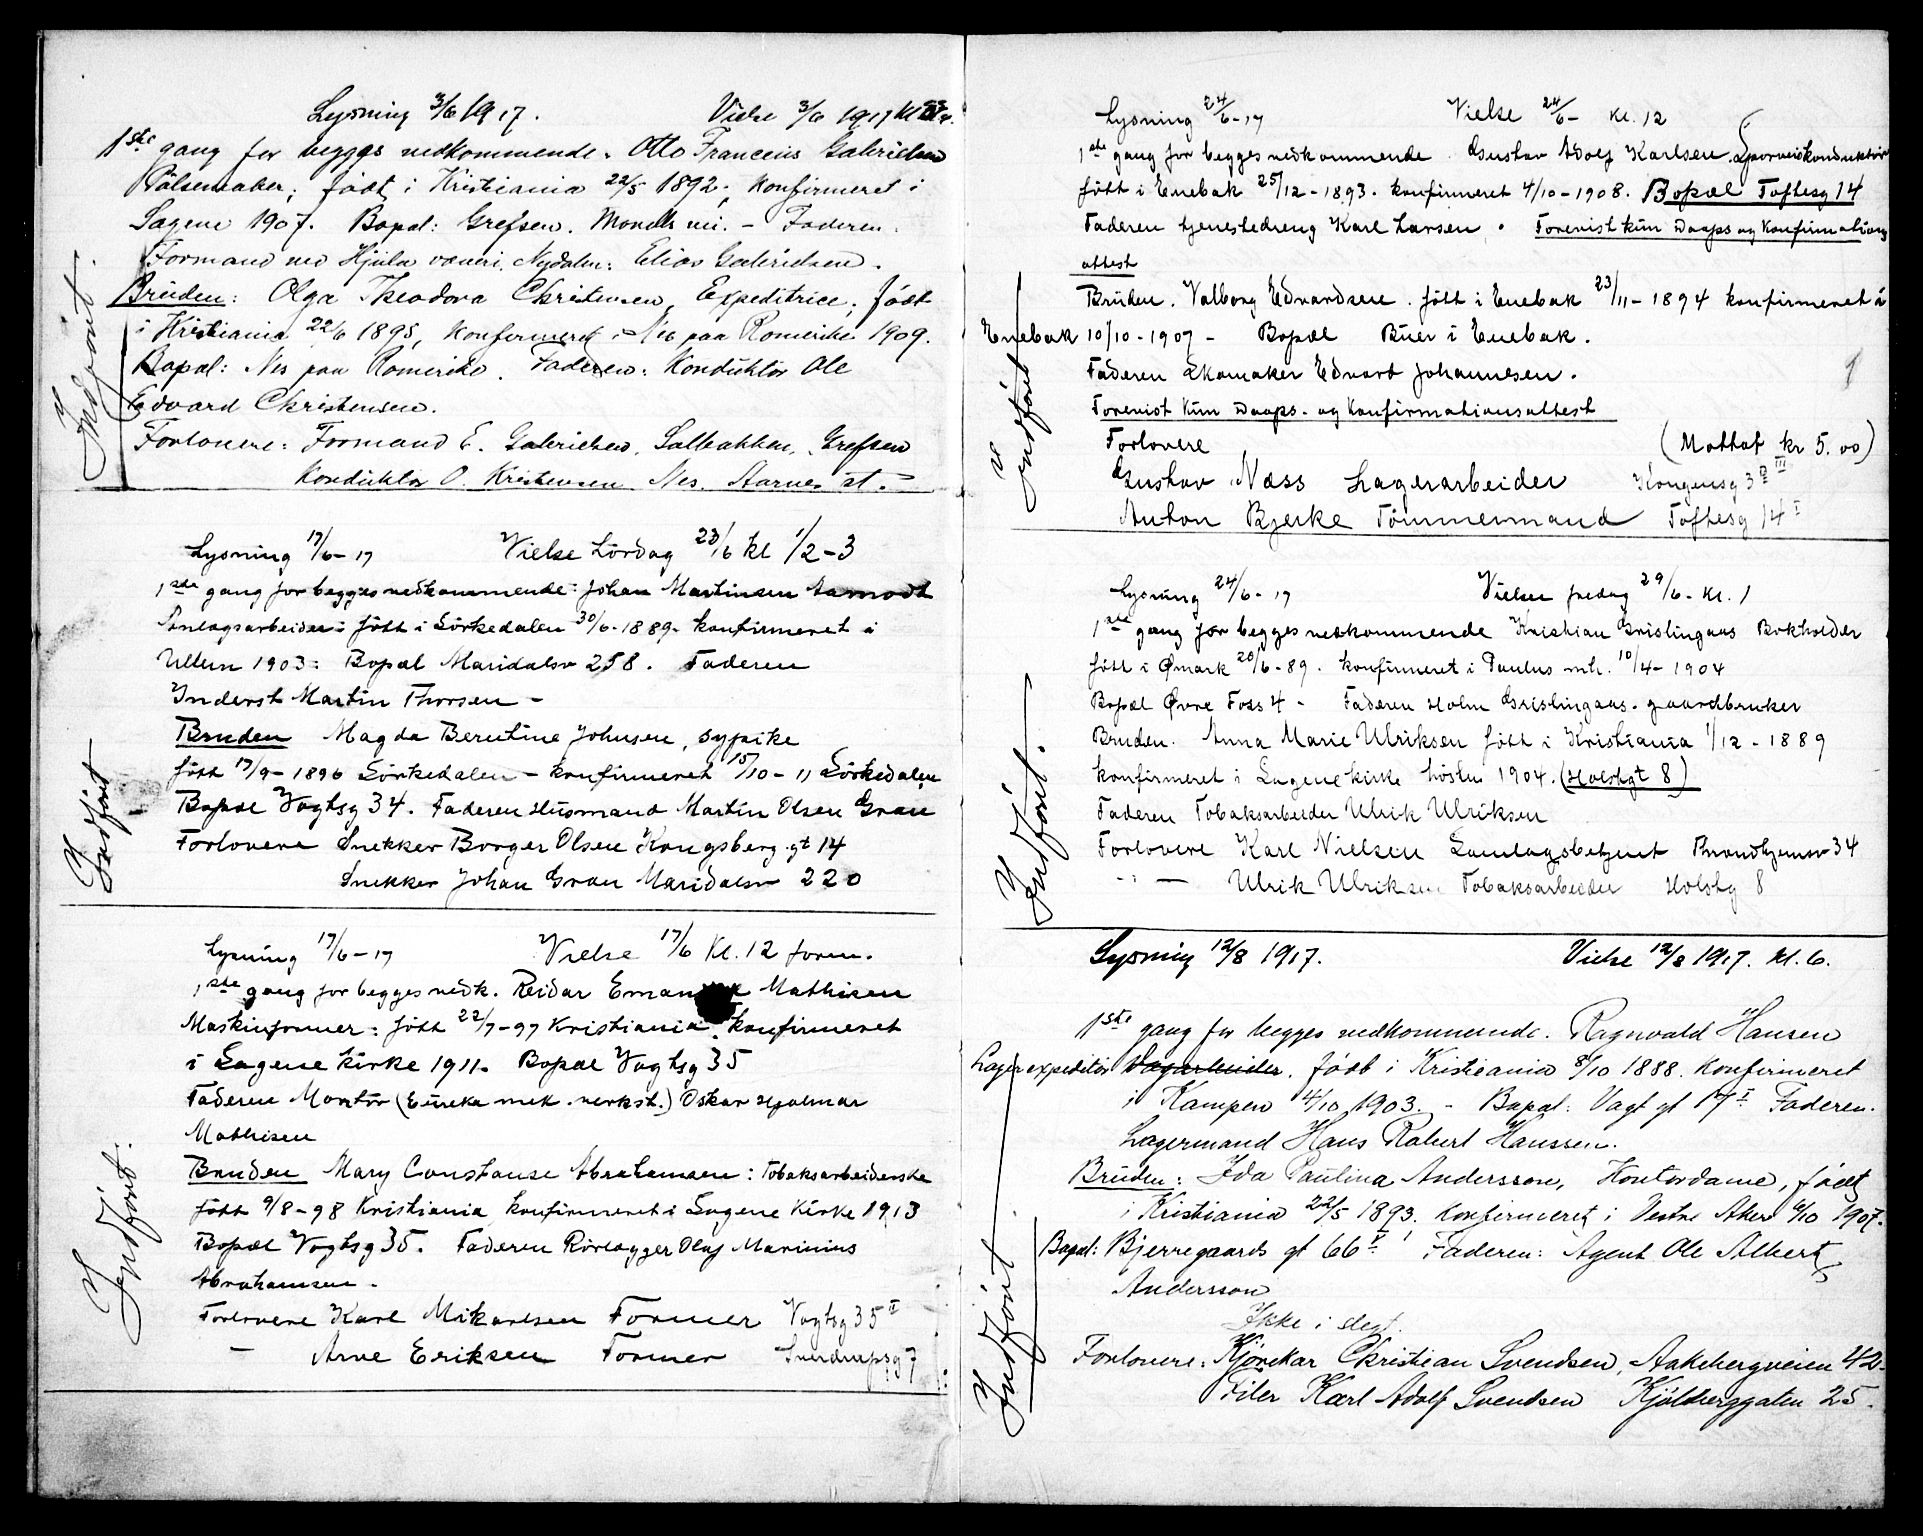 Lysning 3/6 1917. Vielse 3/6 1917 kl
1ste gang for begges vedkommende. Otto Franceiis Gabrielsen
Pölsemaker; födt i Kristiania 22/5 1892; konfirmeret i
Sagene 1907. Bopæl: Grefsen. – Faderen.
Formand ved Hjula væveri, Nydalen: Elias Gabrielsen.
Bruden: Olga Theodora Christensen, Expeditrice, födt
i Kristiania 22/6 1895, konfirmeret i Nes paa Romerike 1909.
Bopæl: Nes paa Romerike. Faderen: Konduktör Ole
Edvard Christensen.
Forlovere: Formand E. Gabrielsen, Solbakken, Grefsen
Konduktör O. Kristensen Nes. Aarnes st.
Indfört.
Lysning 17/6-17 Vielse Lördag 23/6 kl 1/2-3
1ste gang for begges vedkommende: Johan Martinsen Aamodt
födt i Sörkedalen 30/6-1889. konfirmeret i
Ullern 1903: Bopæl Maridalsv 258. Faderen
Inderst Martin Thorsen –
Bruden Magda Berntine Johnsen, sypike
födt 17/9-1896 Sörkedalen – konfirmeret 15/10-11 Sörkedalen
Bopæl Vogtsg 34. Faderen Husmand Martin Olsen Gran
Forlovere Snekker Borger Olsen Kongsberg.gt 14
Snekker Johan Gran Maridalsv 220
Indfört
Lysning 17/6-17 Vielse 17/6 Kl. 12 form.
1ste gang for begges vedk. Reidar Mathisen
Maskinformer: födt 22/7-97 Kristiania. konfirmeret
i Sagene kirke 1911. Bopæl Vogtsg 35
Faderen Montör (Eureka mek. verkst.) Oskar Hjalmar
Mathisen
Bruden Mary Constanse Abrahamsen: Tobaksarbeiderske
födt 9/8-98 Kristiania konfirmeret i Sagene Kirke 1913
Bopæl Vogtsg 35. Faderen Rörlægger Olaf Marinius
Abrahamsen.
Forlovere Karl Mikarlsen Former Vogtsg 35 II
– Arne Eriksen Former Sverdrupsg 7
Indfört.
Lysning 24/6-17 Vielse 24/6- Kl. 12
1ste gang for begges vedkommende. Gustav Adolf Karlsen Sporveiskonduktör
født i Enebak 25/12-1893. konfirmeret 4/10-1908. Bopæl Toftesg 14
Faderen tjenestedreng Karl Larsen. Forevist kun Daaps og Konfirmations
attest
Bruden. Valborg Edvardsen. født i Enebak 23/11-1894 konfirmeret i
Enebak 10/10-1907 – Bopæl Buer i Enebak.
Faderen Skomaker Edvard Johannesen.
Forevist Kun Daaps- og Konfirmationsattest
Forlovere (Mottat kr 5.00)
Gustav Næss Lagerarbeider Kongensg 3 III
Anton Bjerke Tömmermand Toftesg 14 I
Indfört
Lysning 24/6-17 Vielse fredag 29/6- Kl. 1
1ste gang for begges vedkommende Kristian Grislingaas Bokholder
født i Ømark 20/6-89. konfirmeret i Paulus mh. 10/4-1904
Bopæl Øvre Foss 4 – Faderen Holm Grislingaas. gaardbruker
Bruden. Anna Marie Ulriksen født i Kristiania 1/12-1889
konfirmeret i Sagene kirke hösten 1904. (Holstgt 8)
Faderen Tobaksarbeider Ulrik Ulriksen
Forlovere Karl Nielsen Samlagsbetjent Trondhjemsv 34
– Ulrik Ulriksen Tobaksarbeider Holstg 8
Indfört.
Lysning 12/8 1917. Vielse 12/8 1917. kl. 6.
1ste gang for begges vedkommende. Ragnvald Hansen
Lagerexpeditör Lagerarbeider. født i Kristiania 8/10 1888. konfirmeret
i Kampen 4/10 1903. – Bopæl: Vogt gt 17 I Faderen.
Lagermand Hans Robert Hanssen.
Bruden: Ida Paulina Andersson, Kontordame, födt
i Kristiania 22/5 1893. konfirmeret i Vestre Aker 6/10 1907.
Bopæl: Bjerregaards gt 66 V Faderen: Agent Ole Albert
Andersson
Ikke i slegt.
Forlovere: Kjörekar Christian Svendsen, Aakebergveien 42.
Filer Karl Adolf Svendsen Kjölberggaten 25.
Indfört.